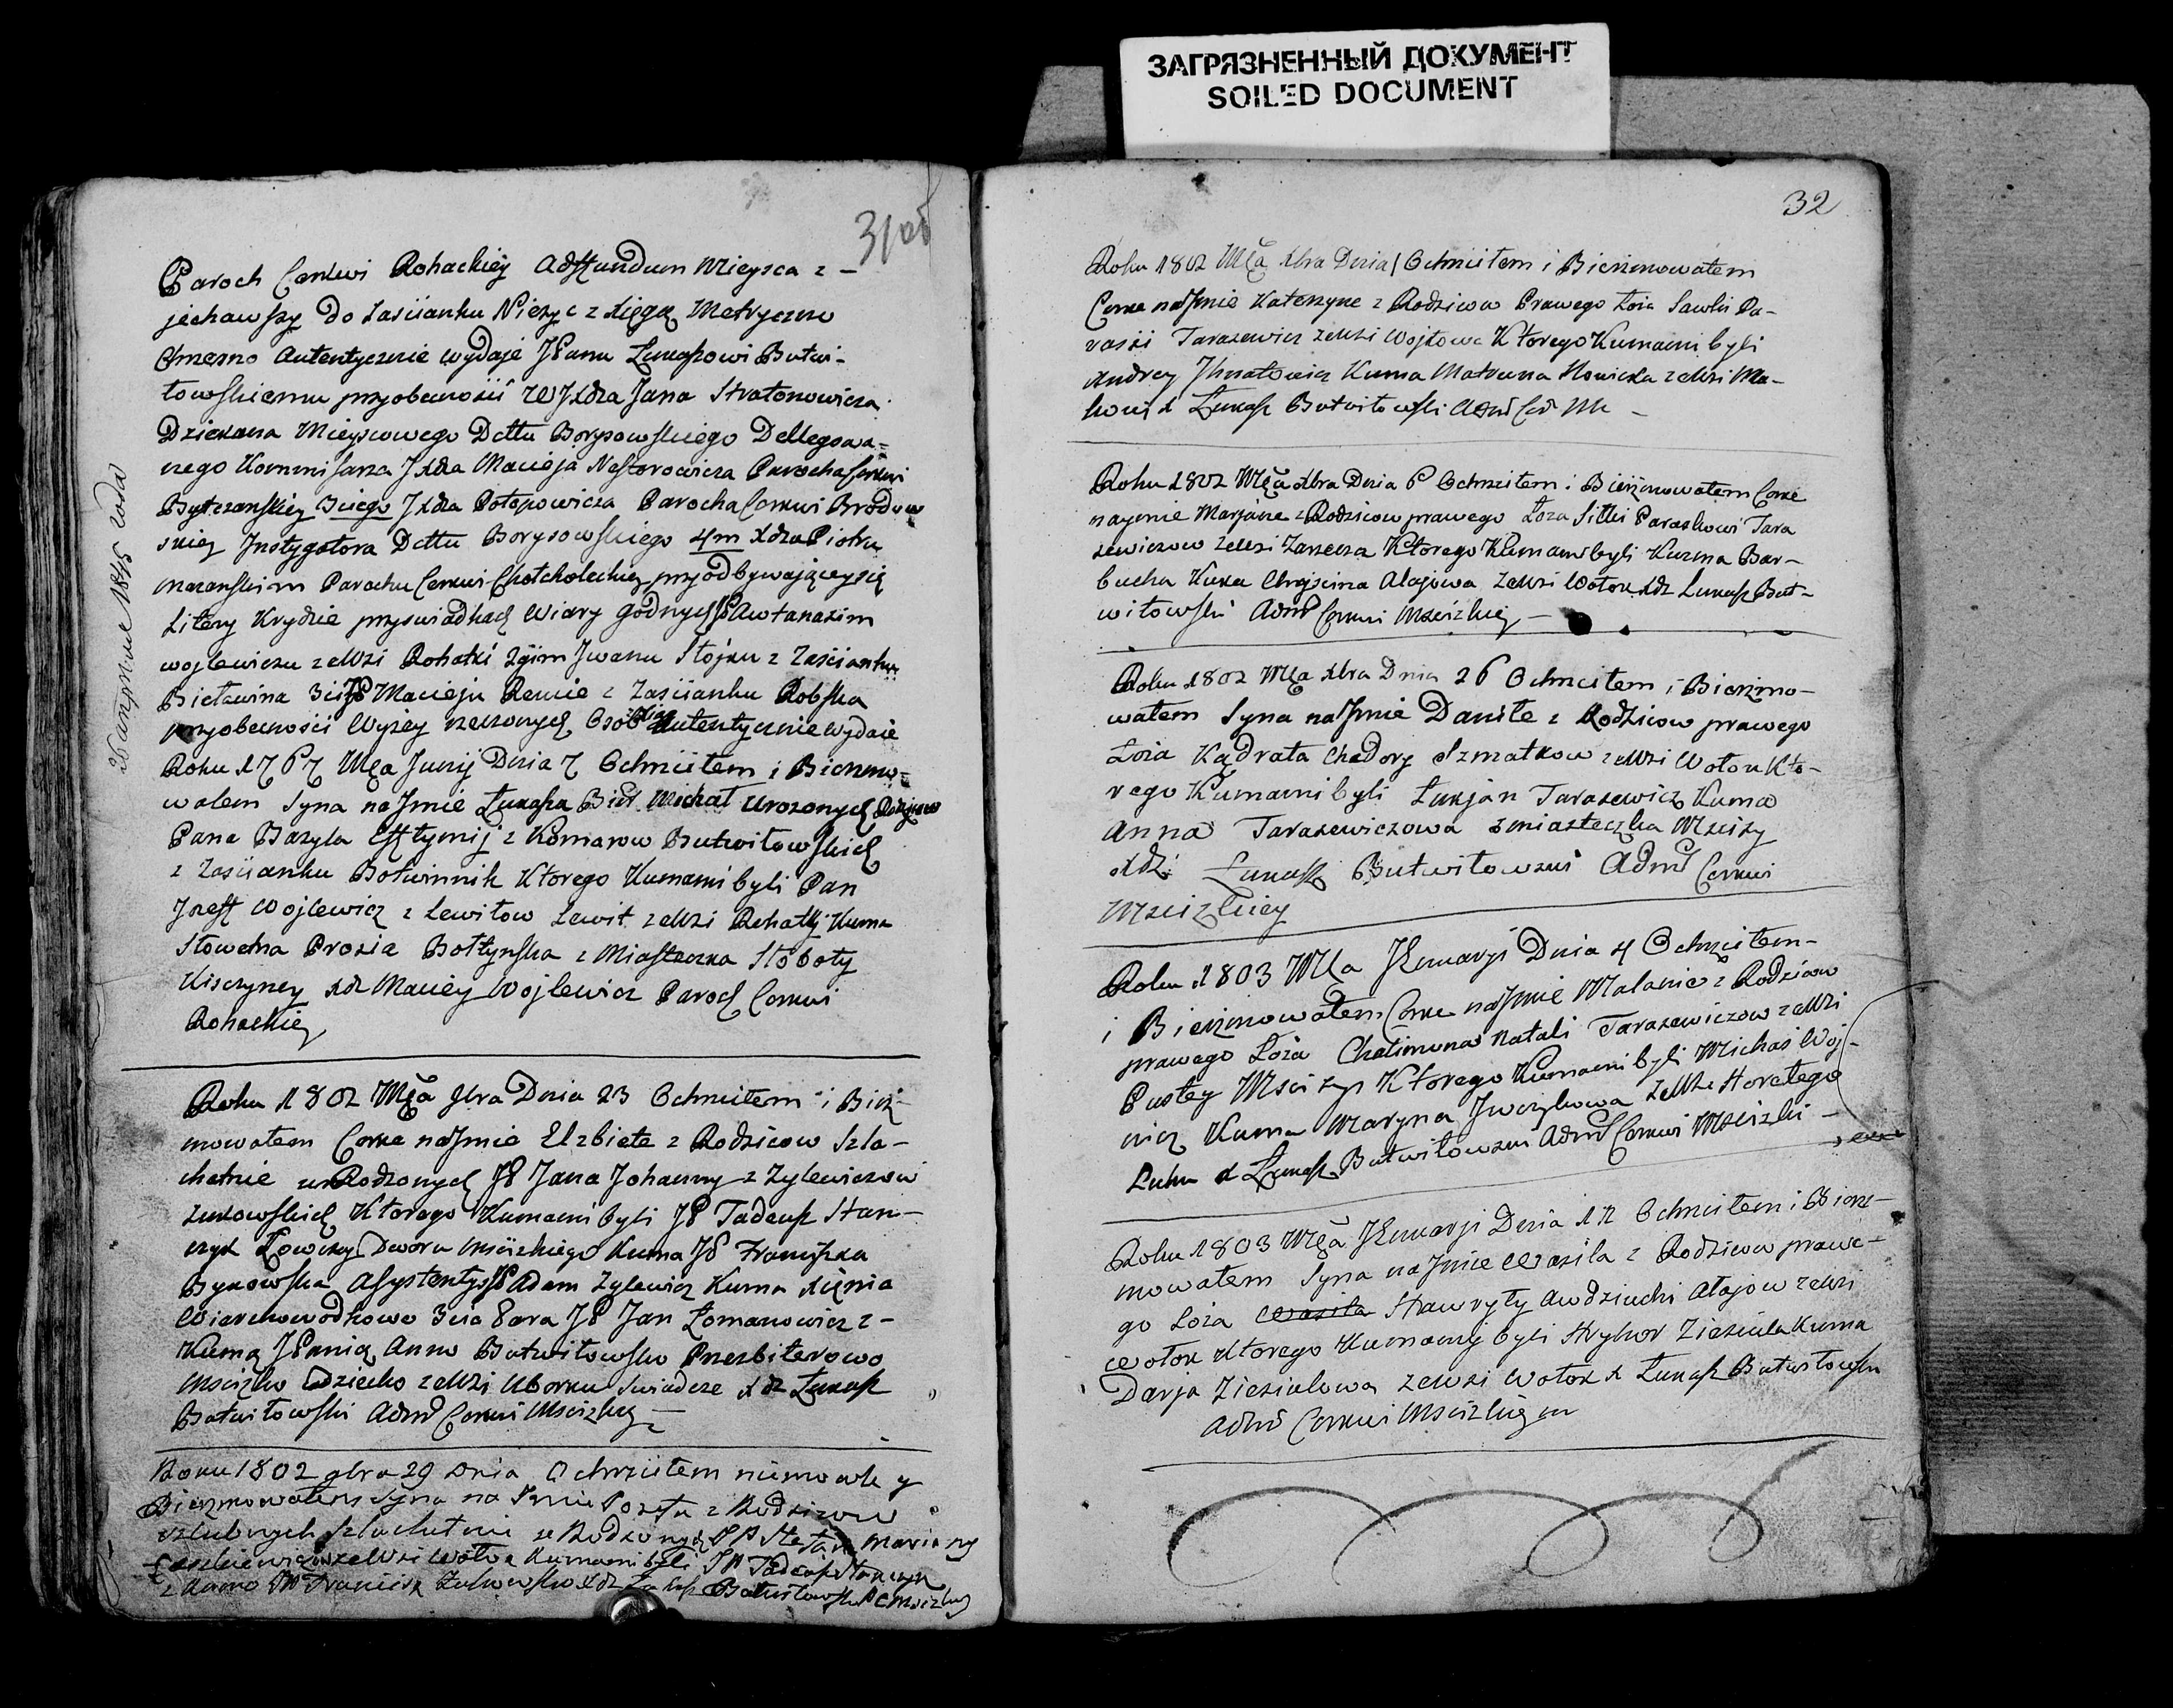 ЗАГРЯЗНЕННЫЙ ДОКУМЕНТ
SOILED DOCUMENT
31об
Paroch Cerkwi Rohackiey Miejsca z
jechawszy Do Zasiianku z Xięgą Metryczno
Autentycznie wydaje JPanu Łukaszowi Butwi-
towskiemu przyobecnosii JXdza Jana Stratonowicza
Dziekana Mieyscowego Dttu Borysowskiego Dellegowa-
nego Kommisarza JXdza Macieja Nestorowicza Parocha Cerkwi
Bytczanskiey 3ciego JXdza Potopowicza Parocha Cerkwi
Instygatora Dttu Borysowskiego 4m Xdza Piotra
Parochu Cerkwi Chotcholeckiey przy odbywającey się
Litery Krydzie przy swiadkach Wiary godnych JP Awtanazim
wojlewiczu ze Wsi Rohatki 2gim Jwanu Stojku z Zasiianku
3ci JP Macieju Remie z Zasiianku
przyobecnosci Wyżey rzeczonych Osob Autentycznie wydaie
Roku 1767 Mca Junij Dnia 7 Ochrciłem i Bierzmo-
wałem Syna na Jmie Łukasza Bier Michał Urozonych
Pana Bazyla Efftymij z Komarow Butwitowskich
z Zasiianku Botwinnik Ktorego Kumami byli Pan
Jozeff Wojlewicz z Lewitow Lewit ze Wsi Rohatki Kuma
Prosia z Miasteczka Słoboty
Xdz Maciey Wojlewicz Paroch Cerkwi
Rohackiey
Roku 1802 Mca 9bra Dnia 23 Ochrciłem i Bierz-
mowałem Corke na Jmie Elzbiete z Rodzicow Szla-
chetnie urRodzonych JP Jana Johanny z Zylewiczow
Zukowskich Ktorego Kumami byli JP Tadeusz Stan-
czyk Łowczy Dworu Msciżkiego Kuma JP Franciszka
Bykowska Asystentyssi JP Adam Zylewicz Kuma Xięnia
3cia Para JP Jan Łomanowicz z
Kumą JPanią Anno Butwitowsko Prezbiterowo
Mscizko Dziecko ze Wsi Uborku Swiadcze Xdz Łukasz
Butwitowski Admr Cerkwi Mscizkiey
Roku 1802 9bra 29 Dnia Ochrziiłem niemowle y
Bierzmowałem Syna na Jmie Jozefa z Rodzicow
szlubnych szlachetnie urRodzonych JP Stefan Mariany
ze Wsi Wołok Kumami byli JP Tadeusz Stanczyk
z Kumo JP Francisz Zukowsko Xdz Łukasz Butwitowski
32
Roku 1802 Mca Xbra Dnia 1 Ochrciłem i Bierzmowałem
Corke na Jmie Katerzyne z Rodzicow Prawego Łoza Sawki Pa-
raski Tarasewicz ze Wsi Wojtowa Ktorego Kumami byli
Andrey Jhnatowicz Kuma Matruna Nowicka ze Wsi Ma-
X Łukasz Butwitowski Admr Cer
Roku 1802 Mca Xbra Dnia 6 Ochrzciłem i Bierzmowałem Corke
na ymie Marjane z Rodzicow prawego Łoza Sitki Paraskowi Tara
sewiczow ze Wsi Zarzecza Ktorego Kumami byli Kuzma Bar-
bucha Kuma Chryscina Alajowa ze Wsi Wołok Xdz Łukasz But-
witowski Admr Cerkwi Mscizkiey
Roku 1802 Mca Xbra Dnia 26 Ochrciłem i Bierzmo-
wałem Syna na Jmie Daniłe z Rodzicow prawego
Łoża Kądrata Chadory Szmatkow ze Wsi Wołok Kto-
rego Kumami byli Łukjan Tarasewicz Kuma
Anna Tarasewiczowa z miasteczka Msciży
Xdz Łukasz Butwitowski Admr Cerkwi
Mscizkiey
Roku 1803 Mca JEnuarji Dnia 4 Ochrzciłem
i Bierzmowałem Corke na Jmie Malanie z Rodzicow
prawego Łoża Chalimona Natali Tarasewiczow ze Wsi
Pustey Msciży Ktorego Kumami byli Michaś Woj-
nicz Kuma Maryna ze Wsi Horełego
Łuhu X Łukasz Butwitowski Admr Cerkwi Mscizki
Roku 1803 Mca JEnuarji Dnia 12 Ochrciłem i Bierz-
mowałem Syna na Jmie Wasila z Rodzicow prawe-
go Łoża Wasila Hawryły Awdziuchi Alajow ze Wsi
Wołok Ktorego Kumamy byli Hryhor Zieziula Kuma
Darja Ziezulowa ze Wsi Wołok X Łukasz Butwitowski
Admr Cerkwi Mscizkiey